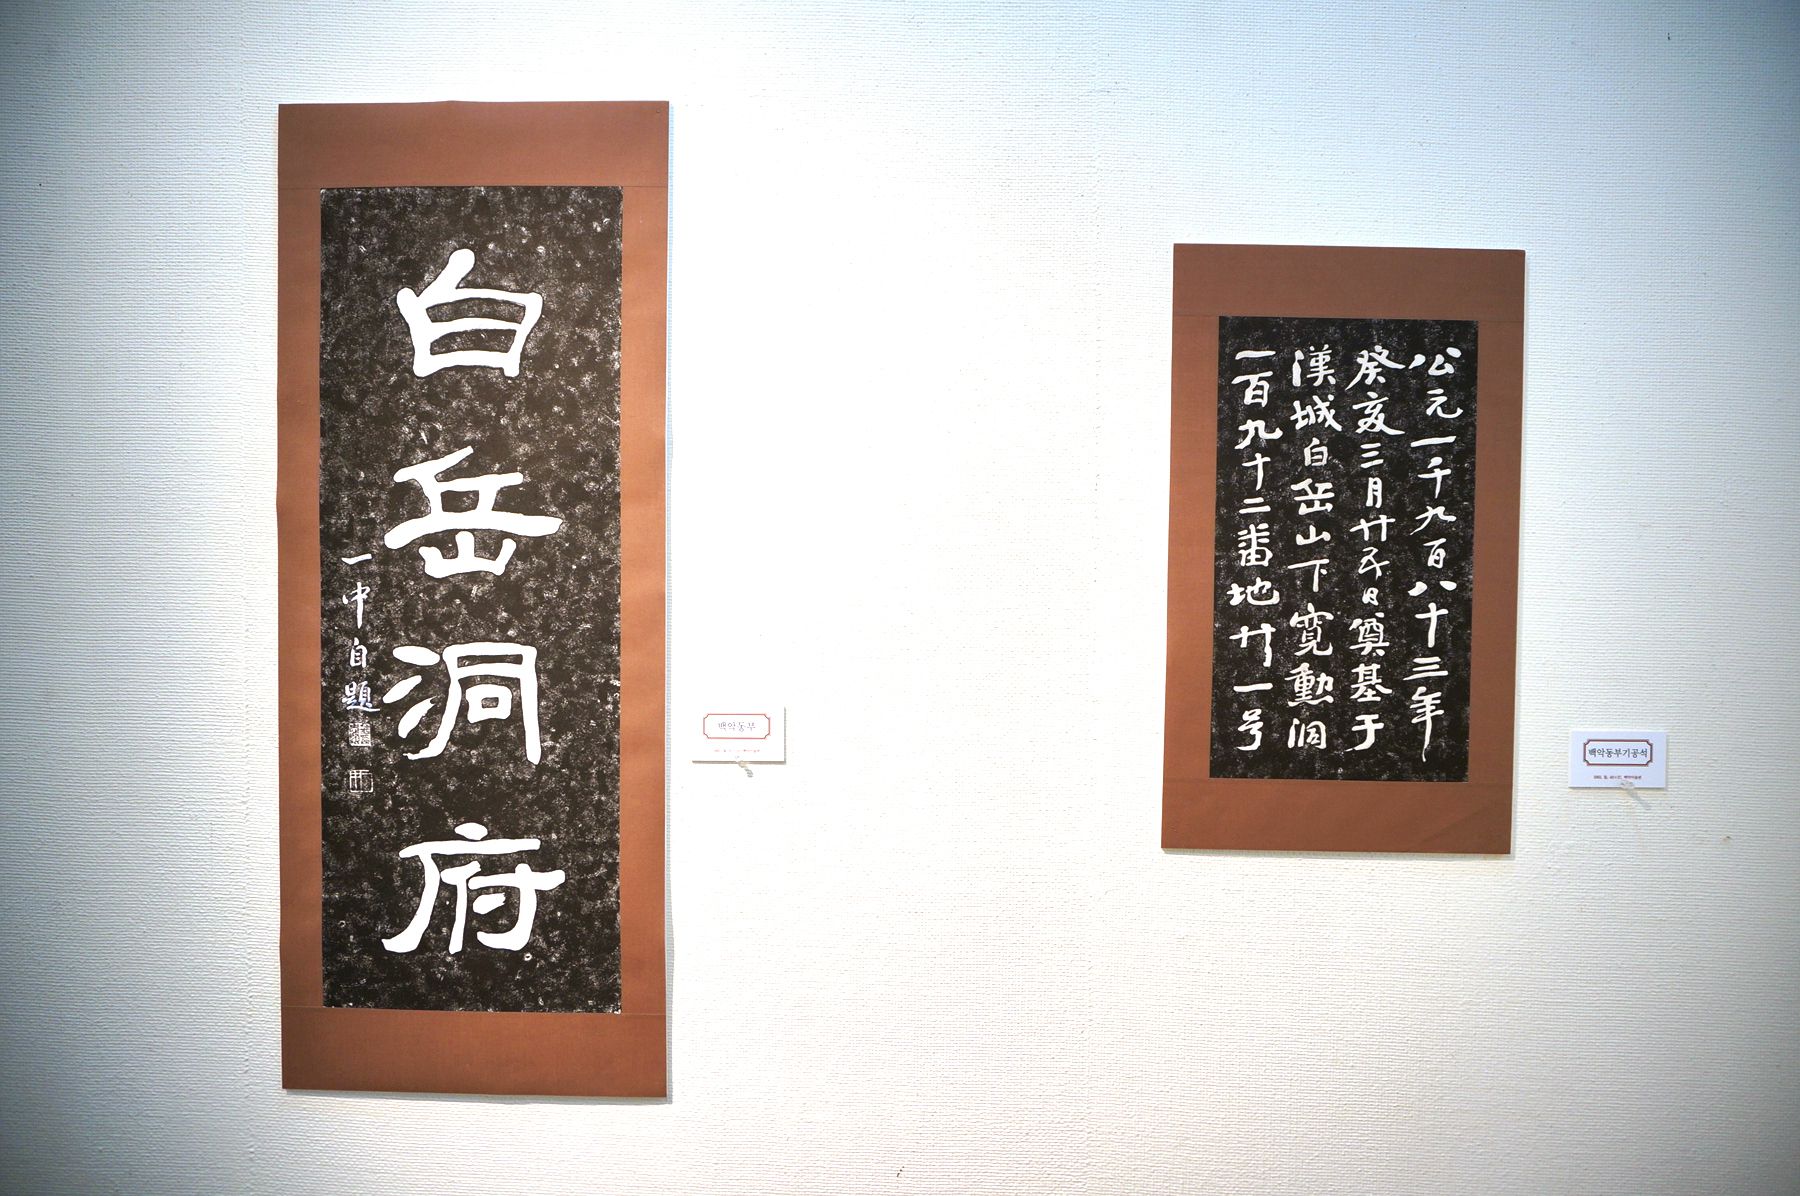 白岳洞府
一中自題
백악동부
公元一千九百八十三年
癸亥三月廿五日奠基于
漢城白岳山下寬勳洞
一百九十二番地廿一号
백악동부기공석